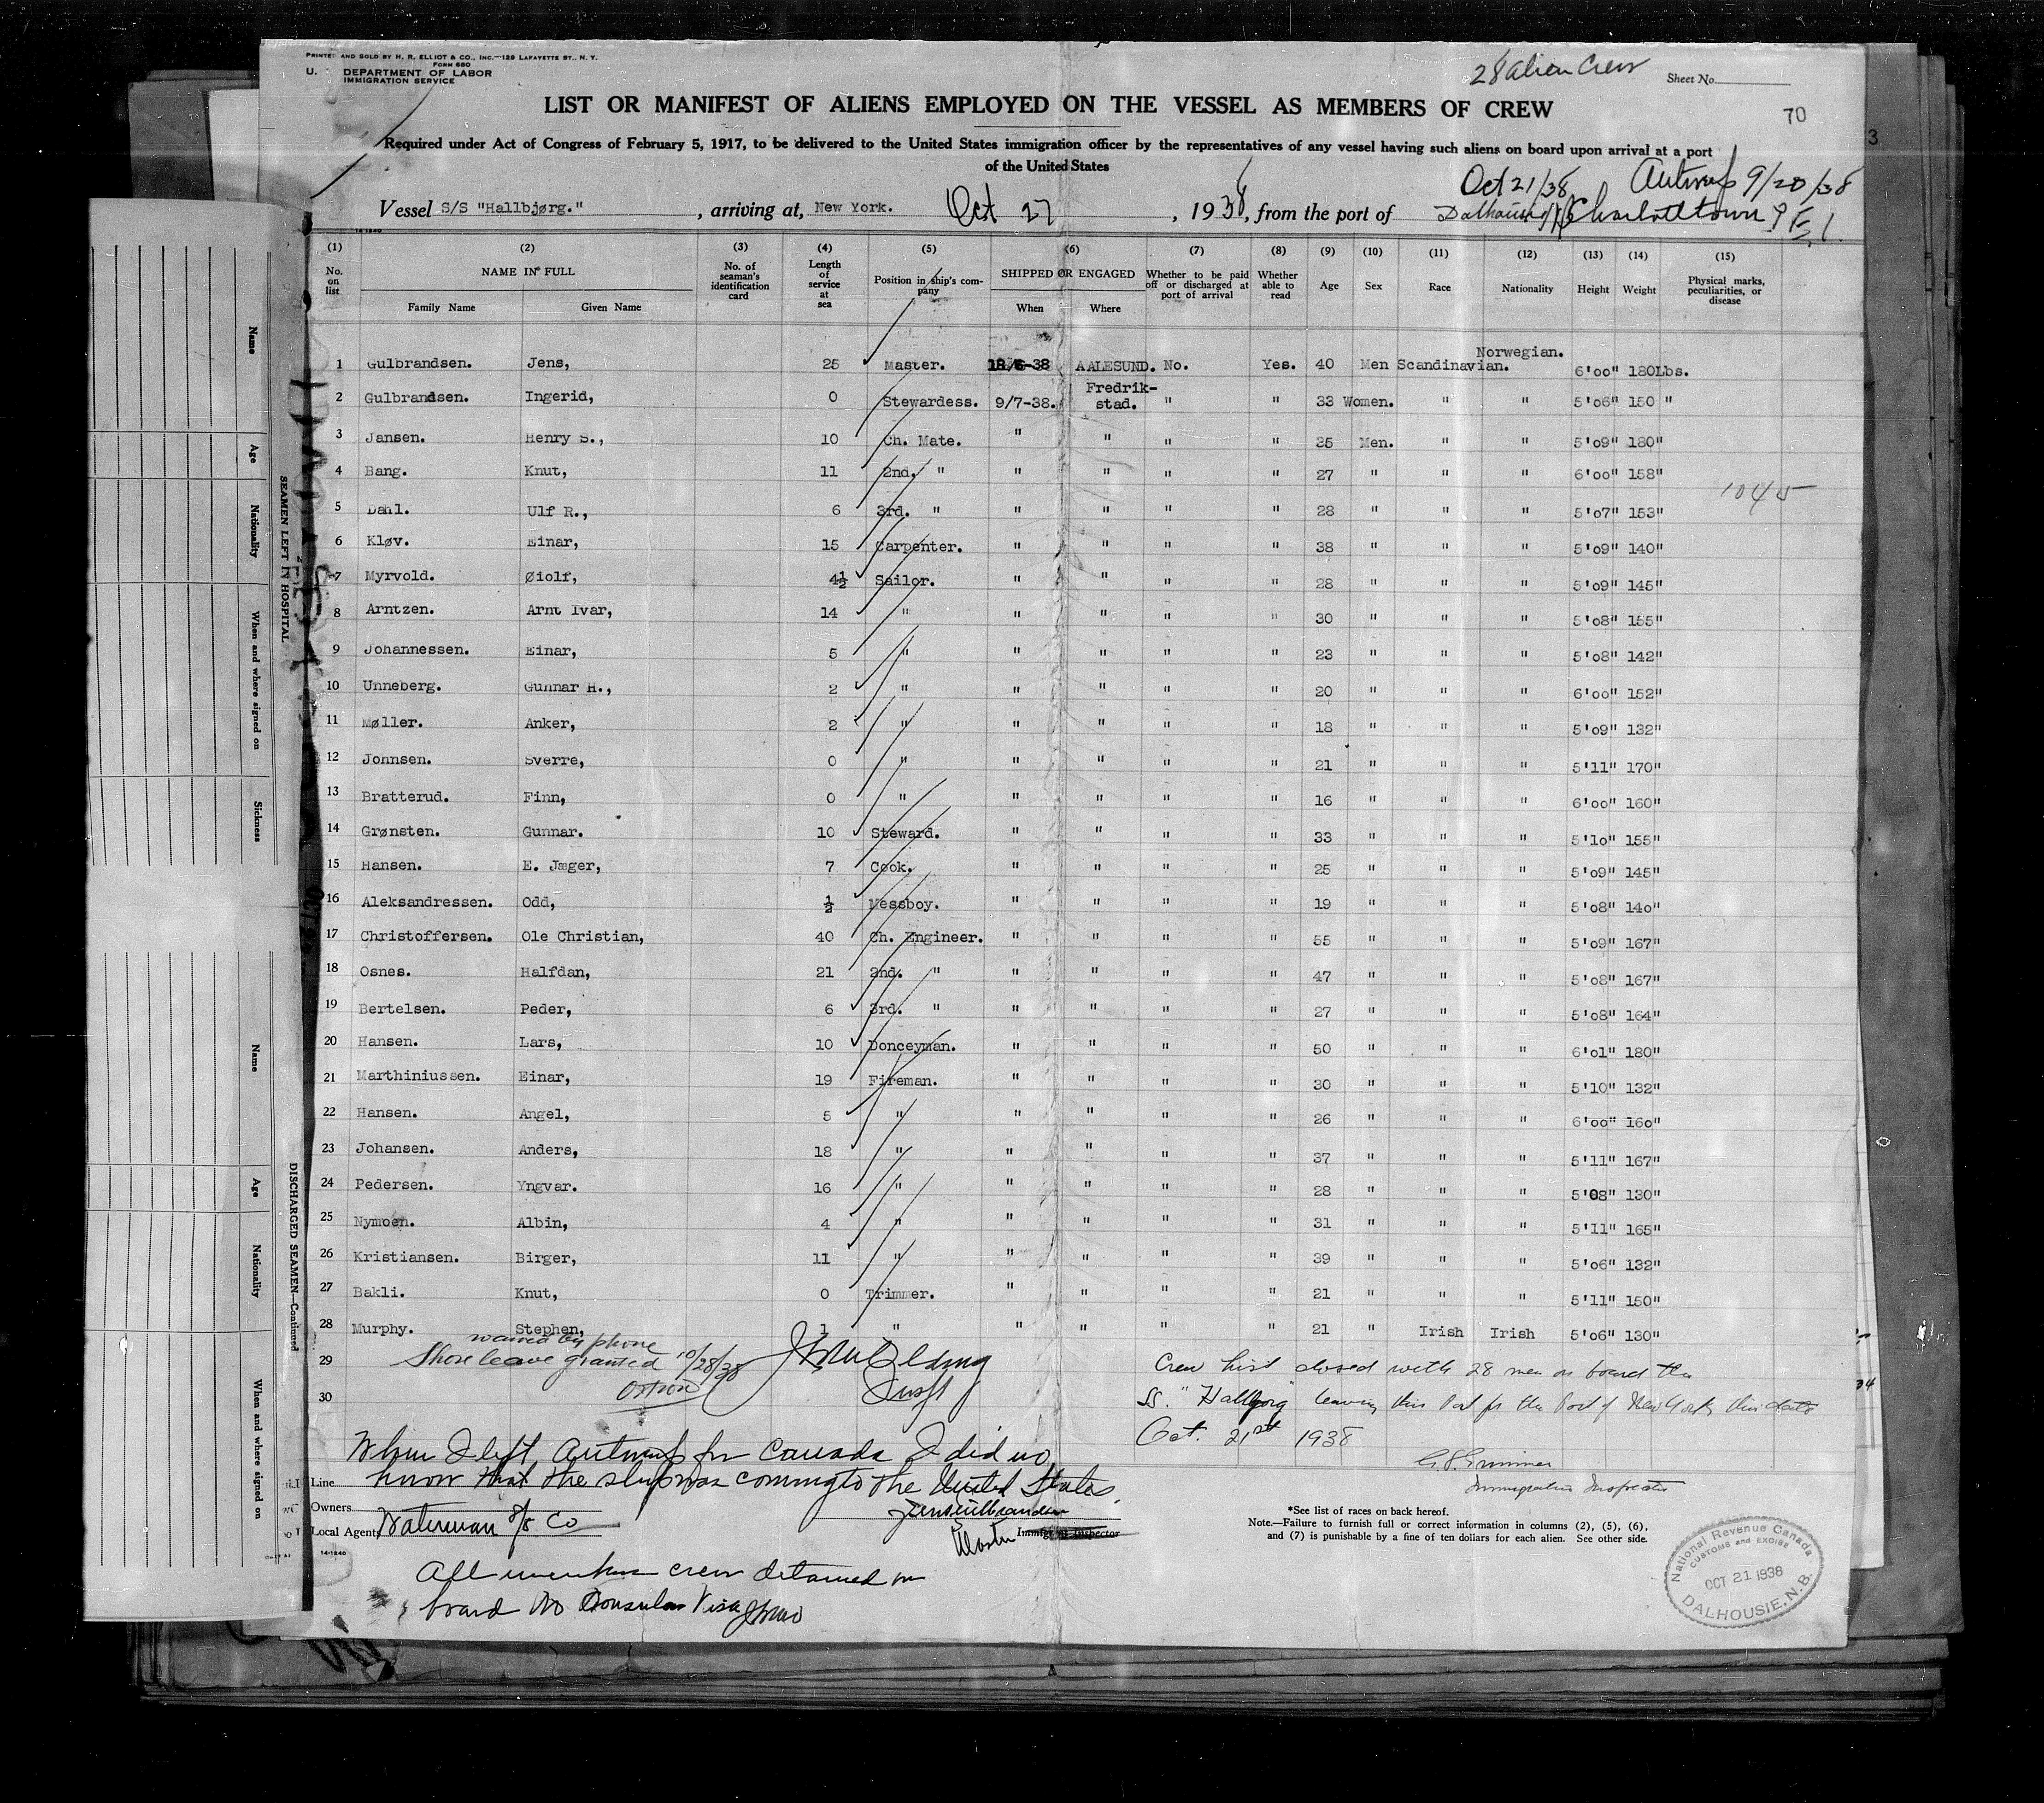 PRINTED AND SOLD BY H. R. ELLIOT & CO., INC.—129 LAFAYETTE ST., N. Y.
FORM 680
U. DEPARTMENT OF LABOR
IMMIGRATION SERVICE
28 alien crew
Sheet No.
70
3
LIST OR MANIFEST OF ALIENS EMPLOYED ON THE VESSEL AS MEMBERS OF CREW
Required under Act of Congress of February 5, 1917, to be delivered to the United States immigration officer by the representatives of any vessel having such aliens on board upon arrival at a port
of the United States
Oct 21/38 Antwerp 9/20/38
Vessel S/S "Hallbjørg.", arriving at, New York. Oct 27, 1938, from the port of Dalhousie NB Charlottetown P E I.
14-1240
(1) (2) (3) (4) (5) (6) (7) (8) (9) (10) (11) (12) (13) (14) (15)
No. on list NAME IN FULL Family Name Given Name No. of seaman's identification card Length of service at sea Position in ship's company SHIPPED OR ENGAGED When Where Whether to be paid off or discharged at port of arrival Whether able to read Age Sex Race Nationality Height Weight Physical marks, peculiarities, or disease
1 Gulbrandsen. Jens, 25 Master. 18/6-38 AALESUND. No. Yes. 40 Men Scandinavian. Norwegian. 6'00" 180Lbs.
2 Gulbrandsen. Ingerid, 0 Stewardess. 9/7-38. Fredrik-stad. " " 33 Women. " " 5'06" 150 "
3 Jansen. Henry S., 10 Ch. Mate. " " " " 35 Men. " " 5'09" 180"
4 Bang. Knut, 11 2nd. " " " " " 27 " " " 6'00" 158"
1045
5 Dahl. Ulf R., 6 3rd. " " " " " 28 " " " 5'07" 153"
6 Kløv. Einar, 15 Carpenter. " " " " 38 " " " 5'09" 140"
7 Myrvold. Øiolf, 4½ Sailor. " " " " 28 " " " 5'09" 145"
8 Arntzen. Arnt Ivar, 14 " " " " " 30 " " " 5'08" 155"
9 Johannessen. Einar, 5 " " " " " 23 " " " 5'08" 142"
10 Unneberg. Gunnar H., 2 " " " " " 20 " " " 6'00" 152"
11 Møller. Anker, 2 " " " " " 18 " " " 5'09" 132"
12 Johnsen. Sverre, 0 " " " " " 21 " " " 5'11" 170"
13 Bratterud. Finn, 0 " " " " " 16 " " " 6'00" 160"
14 Grønsten. Gunnar. 10 Steward. " " " " 33 " " " 5'10" 155"
15 Hansen. E. Jæger, 7 Cook. " " " " 25 " " " 5'09" 145"
16 Aleksandressen. Odd, ½ Messboy. " " " " 19 " " " 5'08" 140"
17 Christoffersen. Ole Christian, 40 Ch. Engineer. " " " " 55 " " " 5'09" 167"
18 Osnes. Halfdan, 21 2nd. " " " " " 47 " " " 5'08" 167"
19 Bertelsen. Peder, 6 3rd. " " " " " 27 " " " 5'08" 164"
20 Hansen. Lars, 10 Donceyman. " " " " 50 " " " 6'01" 180"
21 Marthiniussen. Einar, 19 Fireman. " " " " 30 " " " 5'10" 132"
22 Hansen. Angel, 5 " " " " " 26 " " " 6'00" 160"
23 Johansen. Anders, 18 " " " " " 37 " " " 5'11" 167"
24 Pedersen. Yngvar. 16 " " " " " 28 " " " 5'08" 130"
25 Nymoen. Albin, 4 " " " " " 31 " " " 5'11" 165"
26 Kristiansen. Birger, 11 " " " " " 39 " " " 5'06" 132"
27 Bakli. Knut, 0 Trimmer. " " " " 21 " " " 5'11" 150"
28 Murphy. Stephen, 1 " " " " " 21 " Irish Irish 5'06" 130"
waived by phone
29 Shore leave granted 10/28/38
30
Insp
Crew list closed with 28 men on board the
SS. "Hallbjorg" leaving this Port for the Port of New York this date
Oct. 21st 1938
Immigration Inspector
When I left Antwerp for Canada I did no
know that the ship was coming to the United States.
Jens Gulbrandsen
Master
Line
Owners
Local Agents Waterman S/S Co
Immigrant Inspector
14-1240
All members crew detained on
board No Consular Visa
*See list of races on back hereof.
Note.—Failure to furnish full or correct information in columns (2), (5), (6),
and (7) is punishable by a fine of ten dollars for each alien. See other side.
National Revenue Canada
CUSTOMS and EXCISE
OCT 21 1938
DALHOUSIE, N.B.
SEAMEN LEFT IN HOSPITAL
Name
Age
Nationality
When and where signed on
Sickness
DISCHARGED SEAMEN—Continued
Name
Age
Nationality
When and where signed on